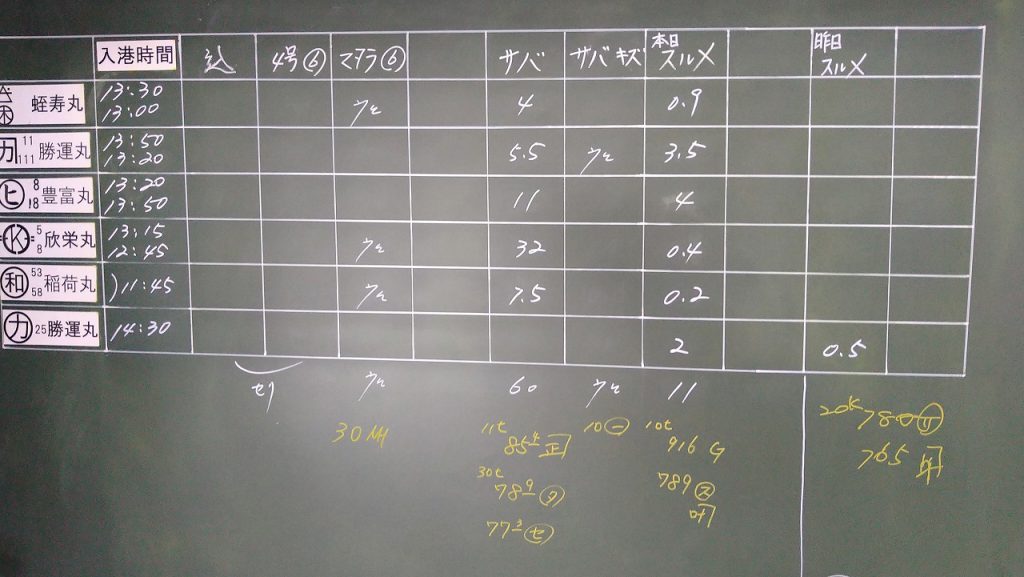 入港時間 込 4号⑥ マダラ⑥ サバ サバキズ 本日スルメ 昨日スルメ
蛭寿丸 13:30 13:00 4 0.9
11 111 勝運丸 13:50 13:20 5.5 3.5
ヒ 8 18 豊富丸 13:20 13:50 11 4
K 5 8 欣栄丸 13:15 12:45 32 0.4
和 53 58 稲荷丸 11:45 7.5 0.2
力 25 勝運丸 14:30 2 0.5
セリ 60 11
30 11t 85 10 10t 916 20K 780
30t 78 789 765
77 セ